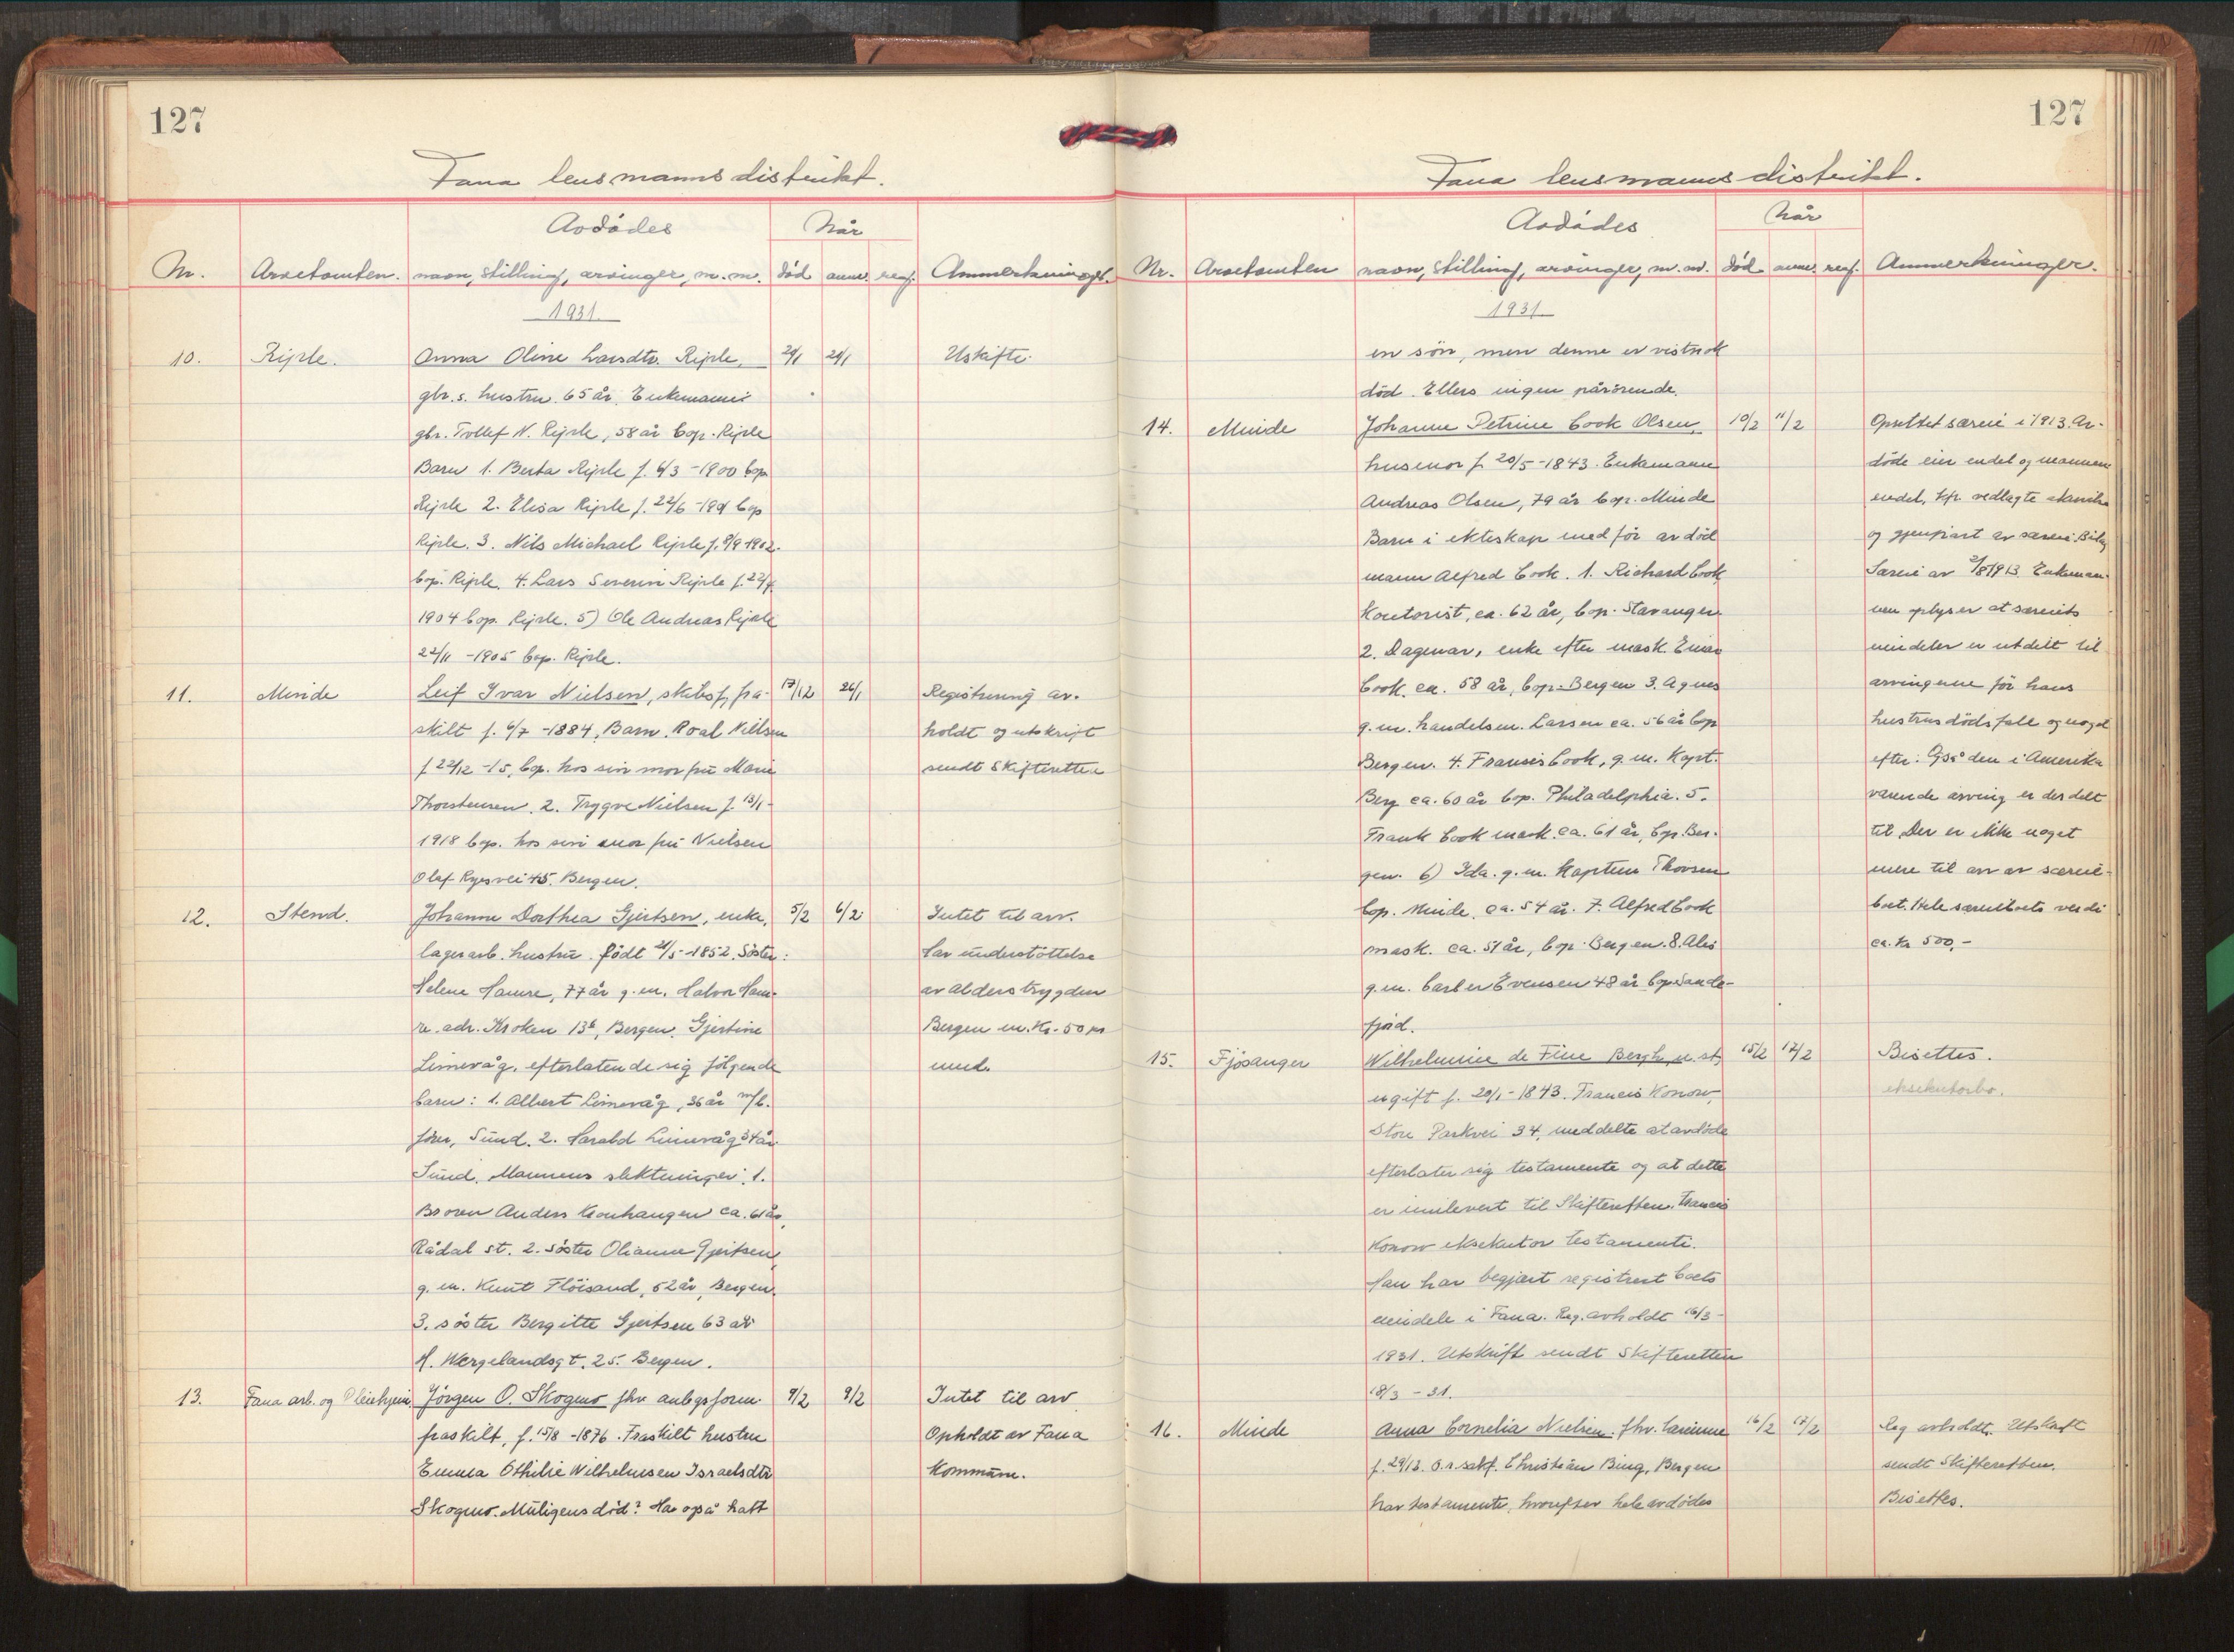 127
Fana lensmannsdistrikt.
Avdödes
Når
Nr. Arvetomten. navn, stilling, arvinger, m.m. död anm. reg. Anmerkninger.
1931.
10. Riple. Anna Oline Larsdtr. Riple, 21/1 Uskifte.
gbr.s. hustru 65 år. Enkemann:
gbr. Tollef N. Riple, 58 år bop. Riple
Barn 1. Berta Riple f. 6/3-1900 bop
Riple 2. Elisa Riple f. 22/6- bop
Riple. 3. Nils Michael Riple f. 9/9 1902.
bop. Riple. 4. Lars Severin Riple f.
1904 bop. Riple. 5) Ole Andreas Riple
22/11-1905 bop. Riple.
11. Minde Leif Ivar Nielsen, skibsf, fra- 17/12 26/1 Registrering av-
skilt f. 6/7-1884, Barn. Roal Nielsen holdt og utskrift
f 22/12-15, bop. hos sin mor fru Marie sendt Skifteretten
Thorstensen. 2. Trygve Nielsen f. 13/1-
1918 bop. hos sin mor fru Nielsen
Olaf Ryesvei 45. Bergen.
12. Stend. Johanne Dorthea Gjertsen, enke, 5/2 6/2 Intet til arv.
lagerarb. hustru. födt 21/5-1852. Söster: har understöttelse
Helene Hamre, 77 år g.m. Halvor Ham- av alderstrygden
re. adr. Kroken 13b, Bergen. Gjertine Bergen m. Kr. 50 pr
Limevåg. efterlatende sig fölgende mnd.
barn: 1. Albert Limevåg, 36 år m/b.
förer, Sund. 2. Harald Limevåg 34 år
Sund. Mannens slektninger: 1.
Broren Anders ca. 61 år,
Rådal st. 2. söster Olianne Gjertsen,
g.m. Knut Flöisand, 52 år, Bergen.
3. söster Bergitte Gjertsen 63 år
H. Wergelandsgt. 25. Bergen.
13. Fana arb. og Pleiehjem. Jörgen O. Skogmo fhv anlegsform. 9/2 9/2 Intet til arv
fraskilt, f. 15/8-1876. Fraskilt hustru Opholdt av Fana
Emma Othilie Wilhelmsen Israelsdtr Kommune.
Skogmo. Muligens död? Har også hatt
127
Fana lensmannsdistrikt.
Avdödes
Når
Nr. Arvetomten navn, stilling, arvinger, m.m. död anm. reg. Anmerkninger.
1931
en sön, men denne er vistnok
död. Ellers ingen pårörende.
14. Minde Johanne Petrine Cook Olsen, 10/2 11/2 Oprettet særeie i 1913. Av-
husmor f. 20/5-1843. Enkemann döde eier endel og mannen
Andreas Olsen, 79 år bop. Minde endel, kfr. vedlagte
Barn i ekteskap med för avdöd og gjenpart av særeie.
mann Alfred Cook. 1. Richard Cook Særeie av 1913. Enkeman-
Kontorist, ca. 62 år, bop. Stavanger. nen oplyser at særeiets
2. Dagmar, enke efter mask. Einar eiendeler er utdelt til
Cook. ca. 58 år, bop. Bergen 3. Agnes arvingerne för hans
g.m. handelsm. Larsen ca. 56 år bop hustrus dödsfall og noget
Bergen. 4. Francis Cook, g.m. Kapt. efter. Også den i Amerika
Berg ca. 60 år bop. Philadelphia. 5. værende arving er der delt
Frank Cook mask. ca. 61 år, bop. Ber- til. Der er ikke noget
gen. 6) Ida. g.m. Kaptein Thorsen mere til arv av særeie-
bop. Minde, ca. 54 år. 7. Alfred Cook boet. Hele særeieboets verdi
mask. ca. 51 år, bop. Bergen. 8. ca. kr 500,-
g.m. barber Evensen 48 år bop Sande-
fjord.
15. Fjösanger Wilhelmine de Fine Bergh, u. st, 15/2 17/2 Bisettes.
ugift f. 20/1-1843. Francis Konow, eksekutorbo.
Store Parkvei 34, meddelte at avdöde
efterlater sig testamente og at dette
er innlevert til Skifteretten. Francis
Konow eksekutor testamenti.
Han har begjært registrert boets
eiendele i Fana. Reg. avholdt 16/3-
1931. Utskrift sendt Skifteretten
18/3-31.
16. Minde Anna Cornelia Nielsen, fhv. 16/2 17/2 Reg avholdt. Utskrift
O.r.sakf. Christian Bing, Bergen sendt Skifteretten.
har testamente, hvorefter hele avdödes Bisettes.